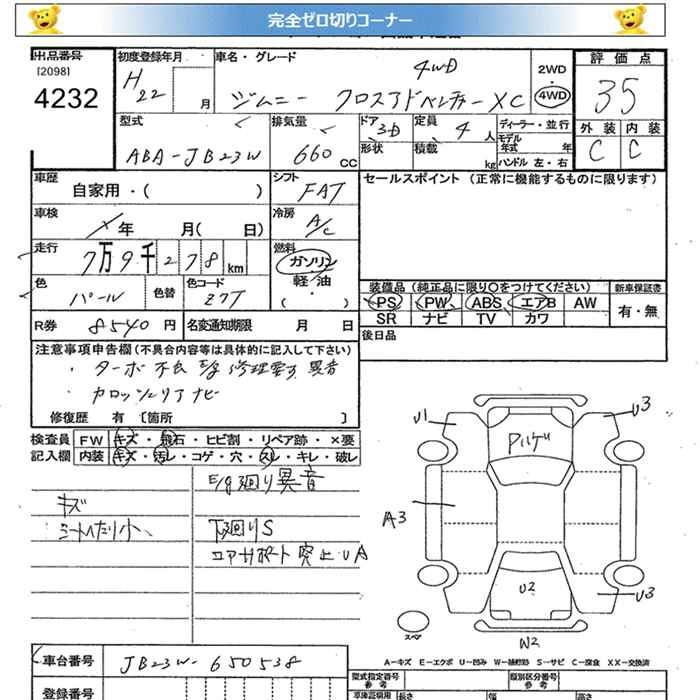 完全ゼロ切りコーナー
出品番号
[2098]
4232
初度登録年月
H22 月
車名・グレード
4WD
ジムニー クロスアドベンチャーXC
2WD
・
4WD
評価点
35
外装 内装
C C
型式
ABA-JB23W
排気量
660 CC
ドア 3D
形状
定員 4 人
積載 kg
ディーラー・並行
モデル年式 年
ハンドル 左・右
車歴
自家用・( )
シフト
FAT
セールスポイント (正常に機能するものに限ります)
車検
年 月( 日)
冷房
A/C
走行
7万9千278km
燃料
ガソリン
軽油
・
( )
色
パール
色替
色コード
Z7T
装備品 (純正品に限り○をつけてください)
PS PW ABS エアB AW
SR ナビ TV カワ
新車保証書
有・無
R券 8540 円
名変通知期限 月 日
後日品
注意事項申告欄(不具合内容等は具体的に記入して下さい)
・ターボ不良 E/g修理要す 異音
・カロッツェリアナビ
修復歴 有 〔箇所 〕
検査員 FW キズ・飛石・ヒビ割・リペア跡・×要
記入欄 内装 キズ・汚レ・コゲ・穴・スレ・キレ・破レ
E/g廻り異音
キズ
シートへたり小、
下廻りS
コアサポート突上UA
U1
U3
A3
U2
U3
W2
スペア
A-キズ E-エクボ U-凹み W-補修跡 S-サビ C-腐食 XX-交換済
車台番号 JB23W-650538
登録番号
型式指定番号
参考
類別区分番号
参考
車検証信用 長さ 幅 高さ